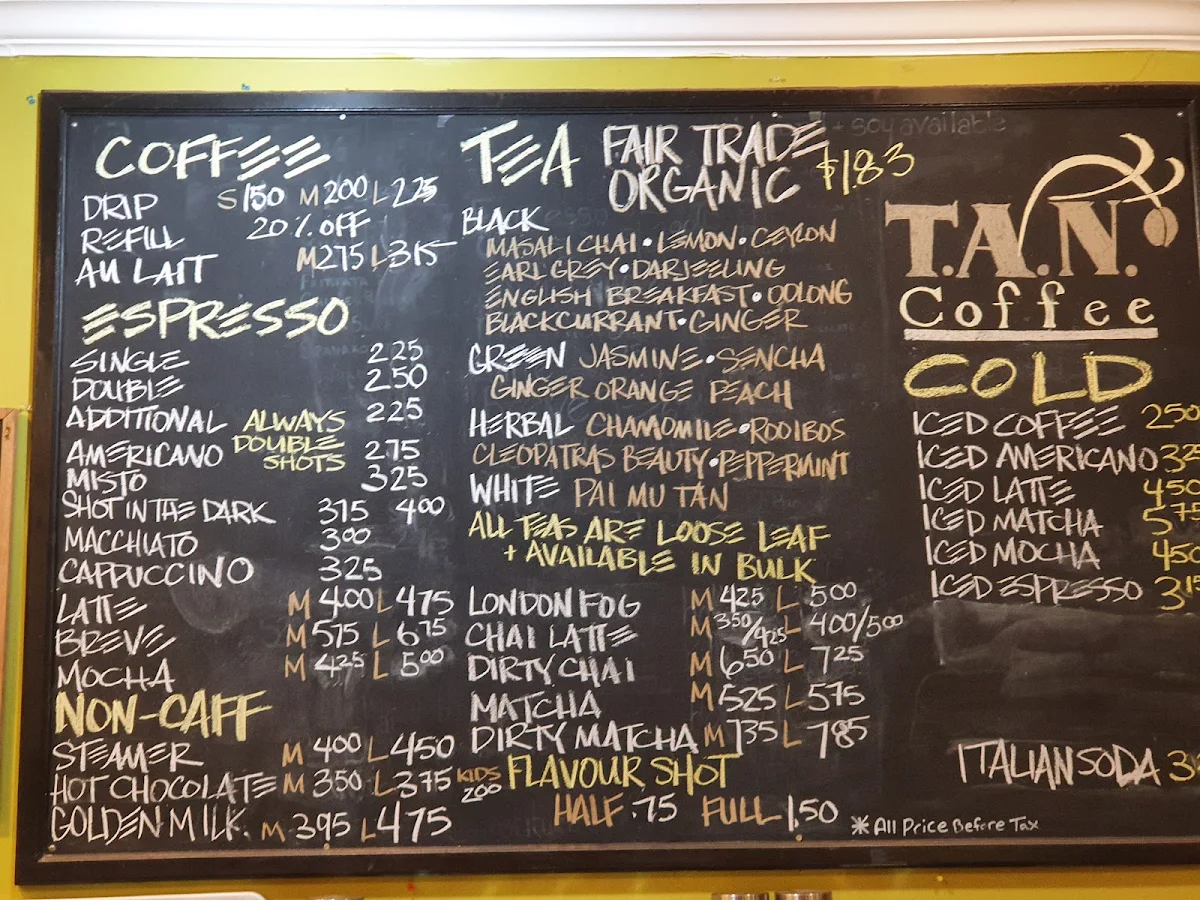 COFFEE
DRIP S 150 M 200 L 225
REFILL 20% OFF
AU LAIT M 275 L 315
ESPRESSO
SINGLE 225
DOUBLE 250
ADDITIONAL 225
ALWAYS
DOUBLE
SHOTS
AMERICANO 275
MISTO 325
SHOT IN THE DARK 315 400
MACCHIATO 300
CAPPUCCINO 325
LATTE M 400 L 475
BREVE M 575 L 675
MOCHA M 425 L 500
NON-CAFF
STEAMER M 400 L 450
HOT CHOCOLATE M 350 L 375 KIDS 200
GOLDEN MILK. M 395 L 475
TEA FAIR TRADE
ORGANIC $1.83
+ soy available
BLACK
MASALI CHAI • LEMON • CEYLON
EARL GREY • DARJEELING
ENGLISH BREAKFAST • OOLONG
BLACKCURRANT • GINGER
GREEN JASMINE • SENCHA
GINGER ORANGE PEACH
HERBAL CHAMOMILE • ROOIBOS
CLEOPATRAS BEAUTY • PEPPERMINT
WHITE PAI MU TAN
ALL TEAS ARE LOOSE LEAF
+ AVAILABLE IN BULK
LONDON FOG M 425 L 500
CHAI LATTE M 350/425 L 400/500
DIRTY CHAI M 650 L 725
MATCHA M 525 L 575
DIRTY MATCHA M 735 L 785
FLAVOUR SHOT
HALF .75 FULL 1.50
* All Price Before Tax
T.A.N.
Coffee
COLD
ICED COFFEE 250
ICED AMERICANO 325
ICED LATTE 450
ICED MATCHA 575
ICED MOCHA 450
ICED ESPRESSO 315
ITALIAN SODA